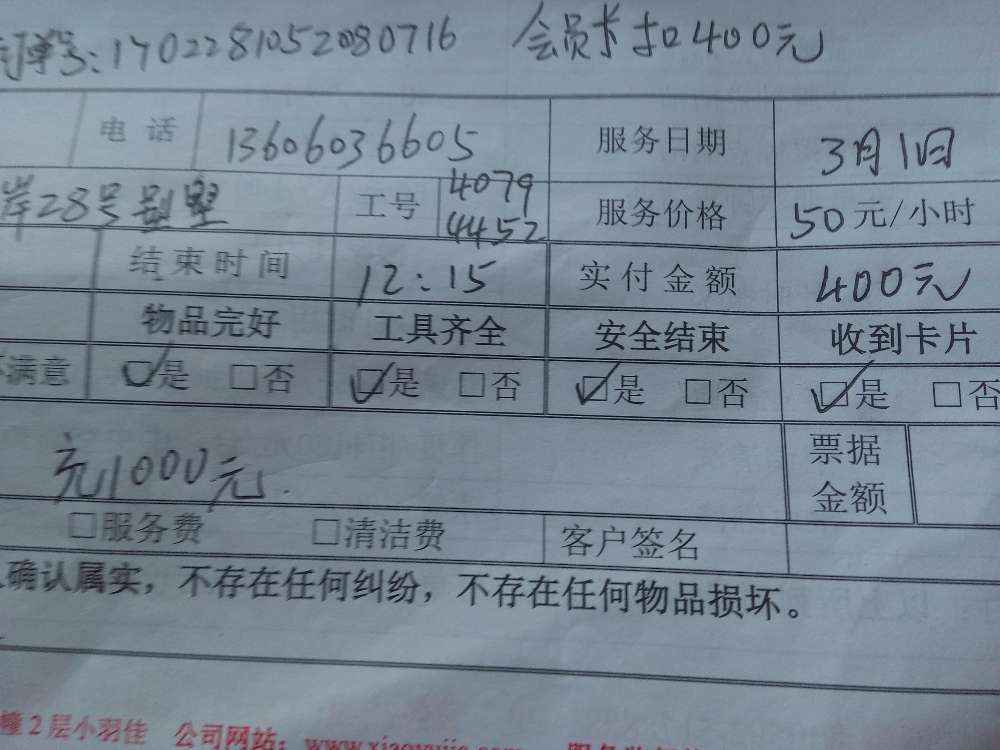 订单号:1702281052080716 会员卡扣400元
电话 13606036605 服务日期 3月1日
岸28号别墅 工号 4079 4452 服务价格 50元/小时
结束时间 12:15 实付金额 400元
物品完好 工具齐全 安全结束 收到卡片
不满意 ☑是 □否 ☑是 □否 ☑是 □否 ☑是 □否
充1000元. 票据金额
□服务费 □清洁费 客户签名
确认属实，不存在任何纠纷，不存在任何物品损坏。
幢2层小羽佳 公司网站：www.xiaoyujia.com